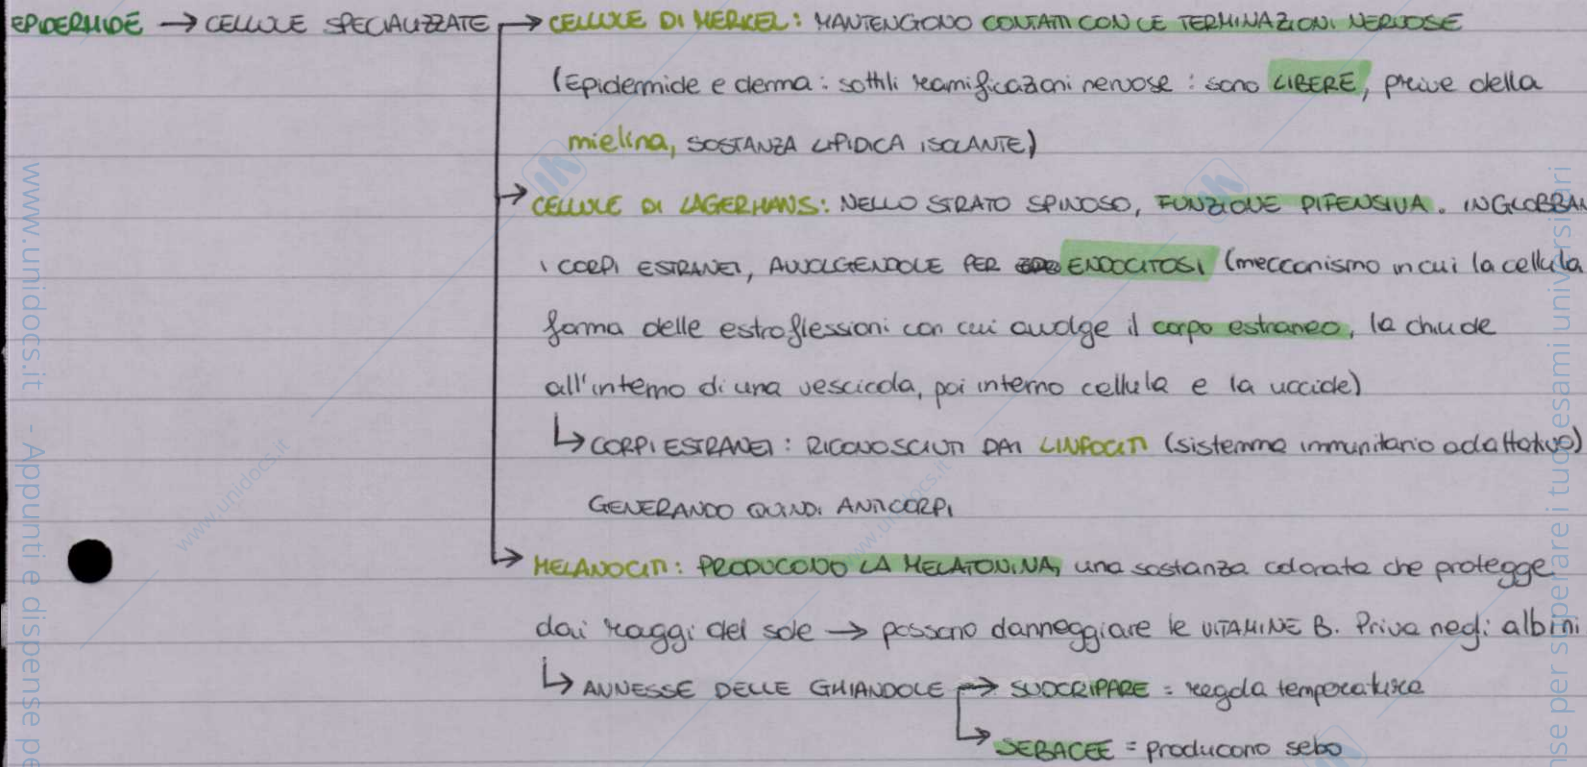 EPIDERMIDE → CELLULE SPECIALIZZATE → CELLULE DI MERKEL: MANTENGONO CONTATTI CON LE TERMINAZIONI NERVOSE
(Epidermide e derma: sottili ramificazioni nervose: sono LIBERE, prive della
mielina, SOSTANZA LIPIDICA ISOLANTE)
→ CELLULE DI LAGERHANS: NELLO STRATO SPINOSO, FUNZIONE DIFENSIVA. INGLOBBAN
I CORPI ESTRANEI, AVVOLGENDOLE PER ENDOCITOSI (meccanismo in cui la cellula
forma delle estroflessioni con cui avvolge il corpo estraneo, la chiude
all'interno di una vescicola, poi interno cellula e la uccide)
↳ CORPI ESTRANEI: RICONOSCIUTI DAI LINFOCITI (sistema immunitario adattativo)
GENERANDO QUINDI ANTICORPI
→ MELANOCITI: PRODUCONO LA MELATONINA, una sostanza colorata che protegge
dai raggi del sole → possono danneggiare le VITAMINE B. Priva negli albini
↳ ANNESSE DELLE GHIANDOLE → SUDORIPARE = regola temperatura
↳ SEBACEE = producono sebo
www.unidocs.it - Appunti e dispense pe
nse per superare i tuoi esami universitari
www.unidocs.it
www.unidocs.it